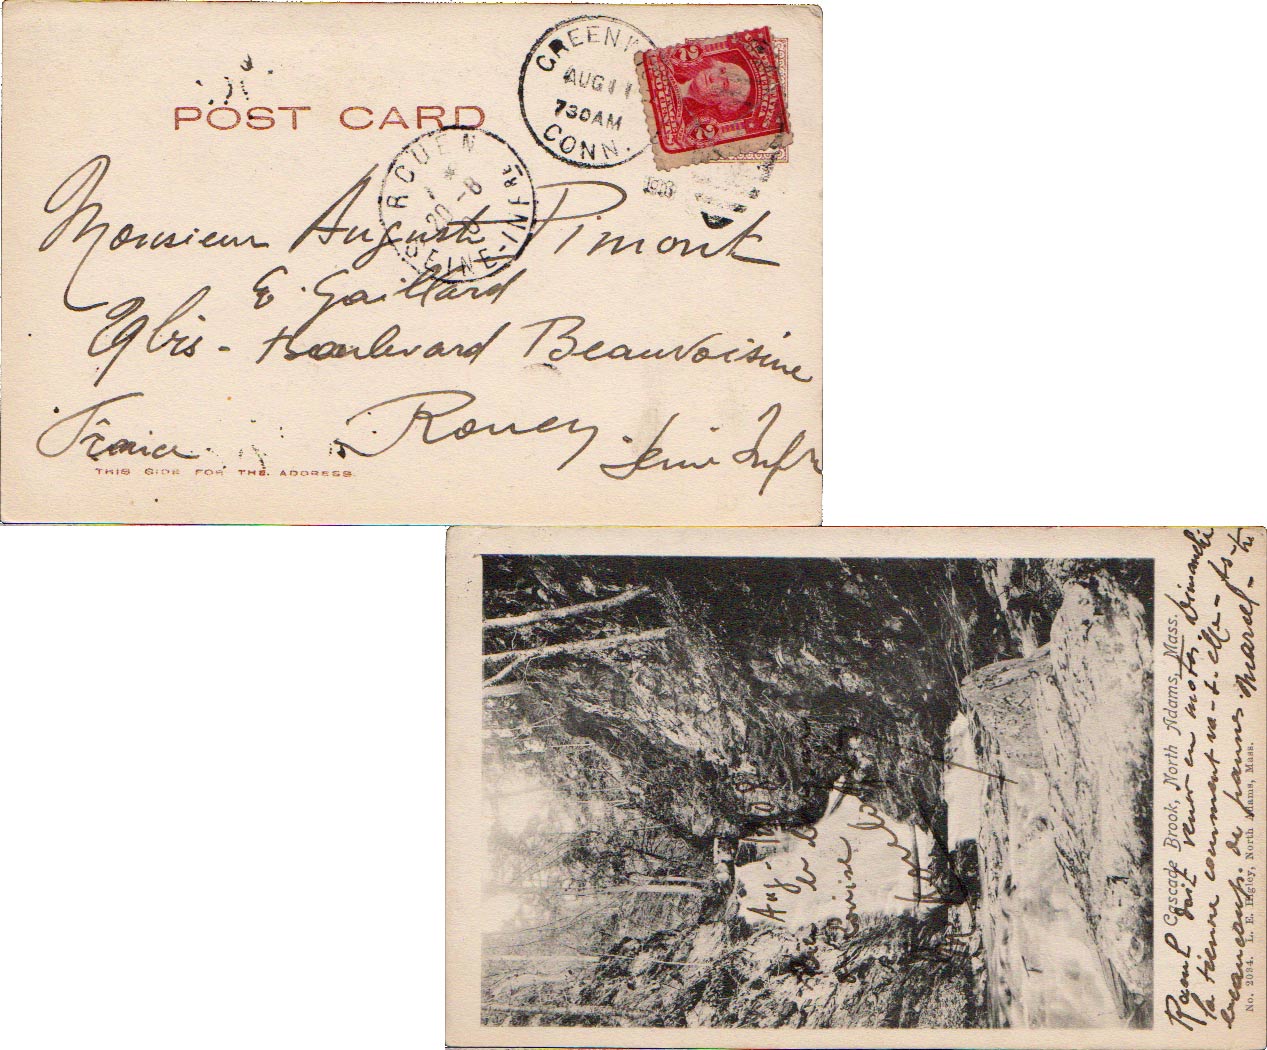 POST CARD
GREENW
AUG 11
730AM
CONN.
2 2
ROUEN
20 -8
SEINE-INFRE
Monsieur Auguste Pimont
E. Gaillard
29bis - Boulevard Beauvoisine
France Rouen Seine Infre
THIS SIDE FOR THE ADDRESS
Aug. 1908
Louise
Cascade Brook, North Adams, Mass.
Raoul doit venir en moto, Dimanche
la tienne comment va-t-elle -
beaucoup de pannes Marcel -
No. 2094. L. E. Higley, North Adams, Mass.